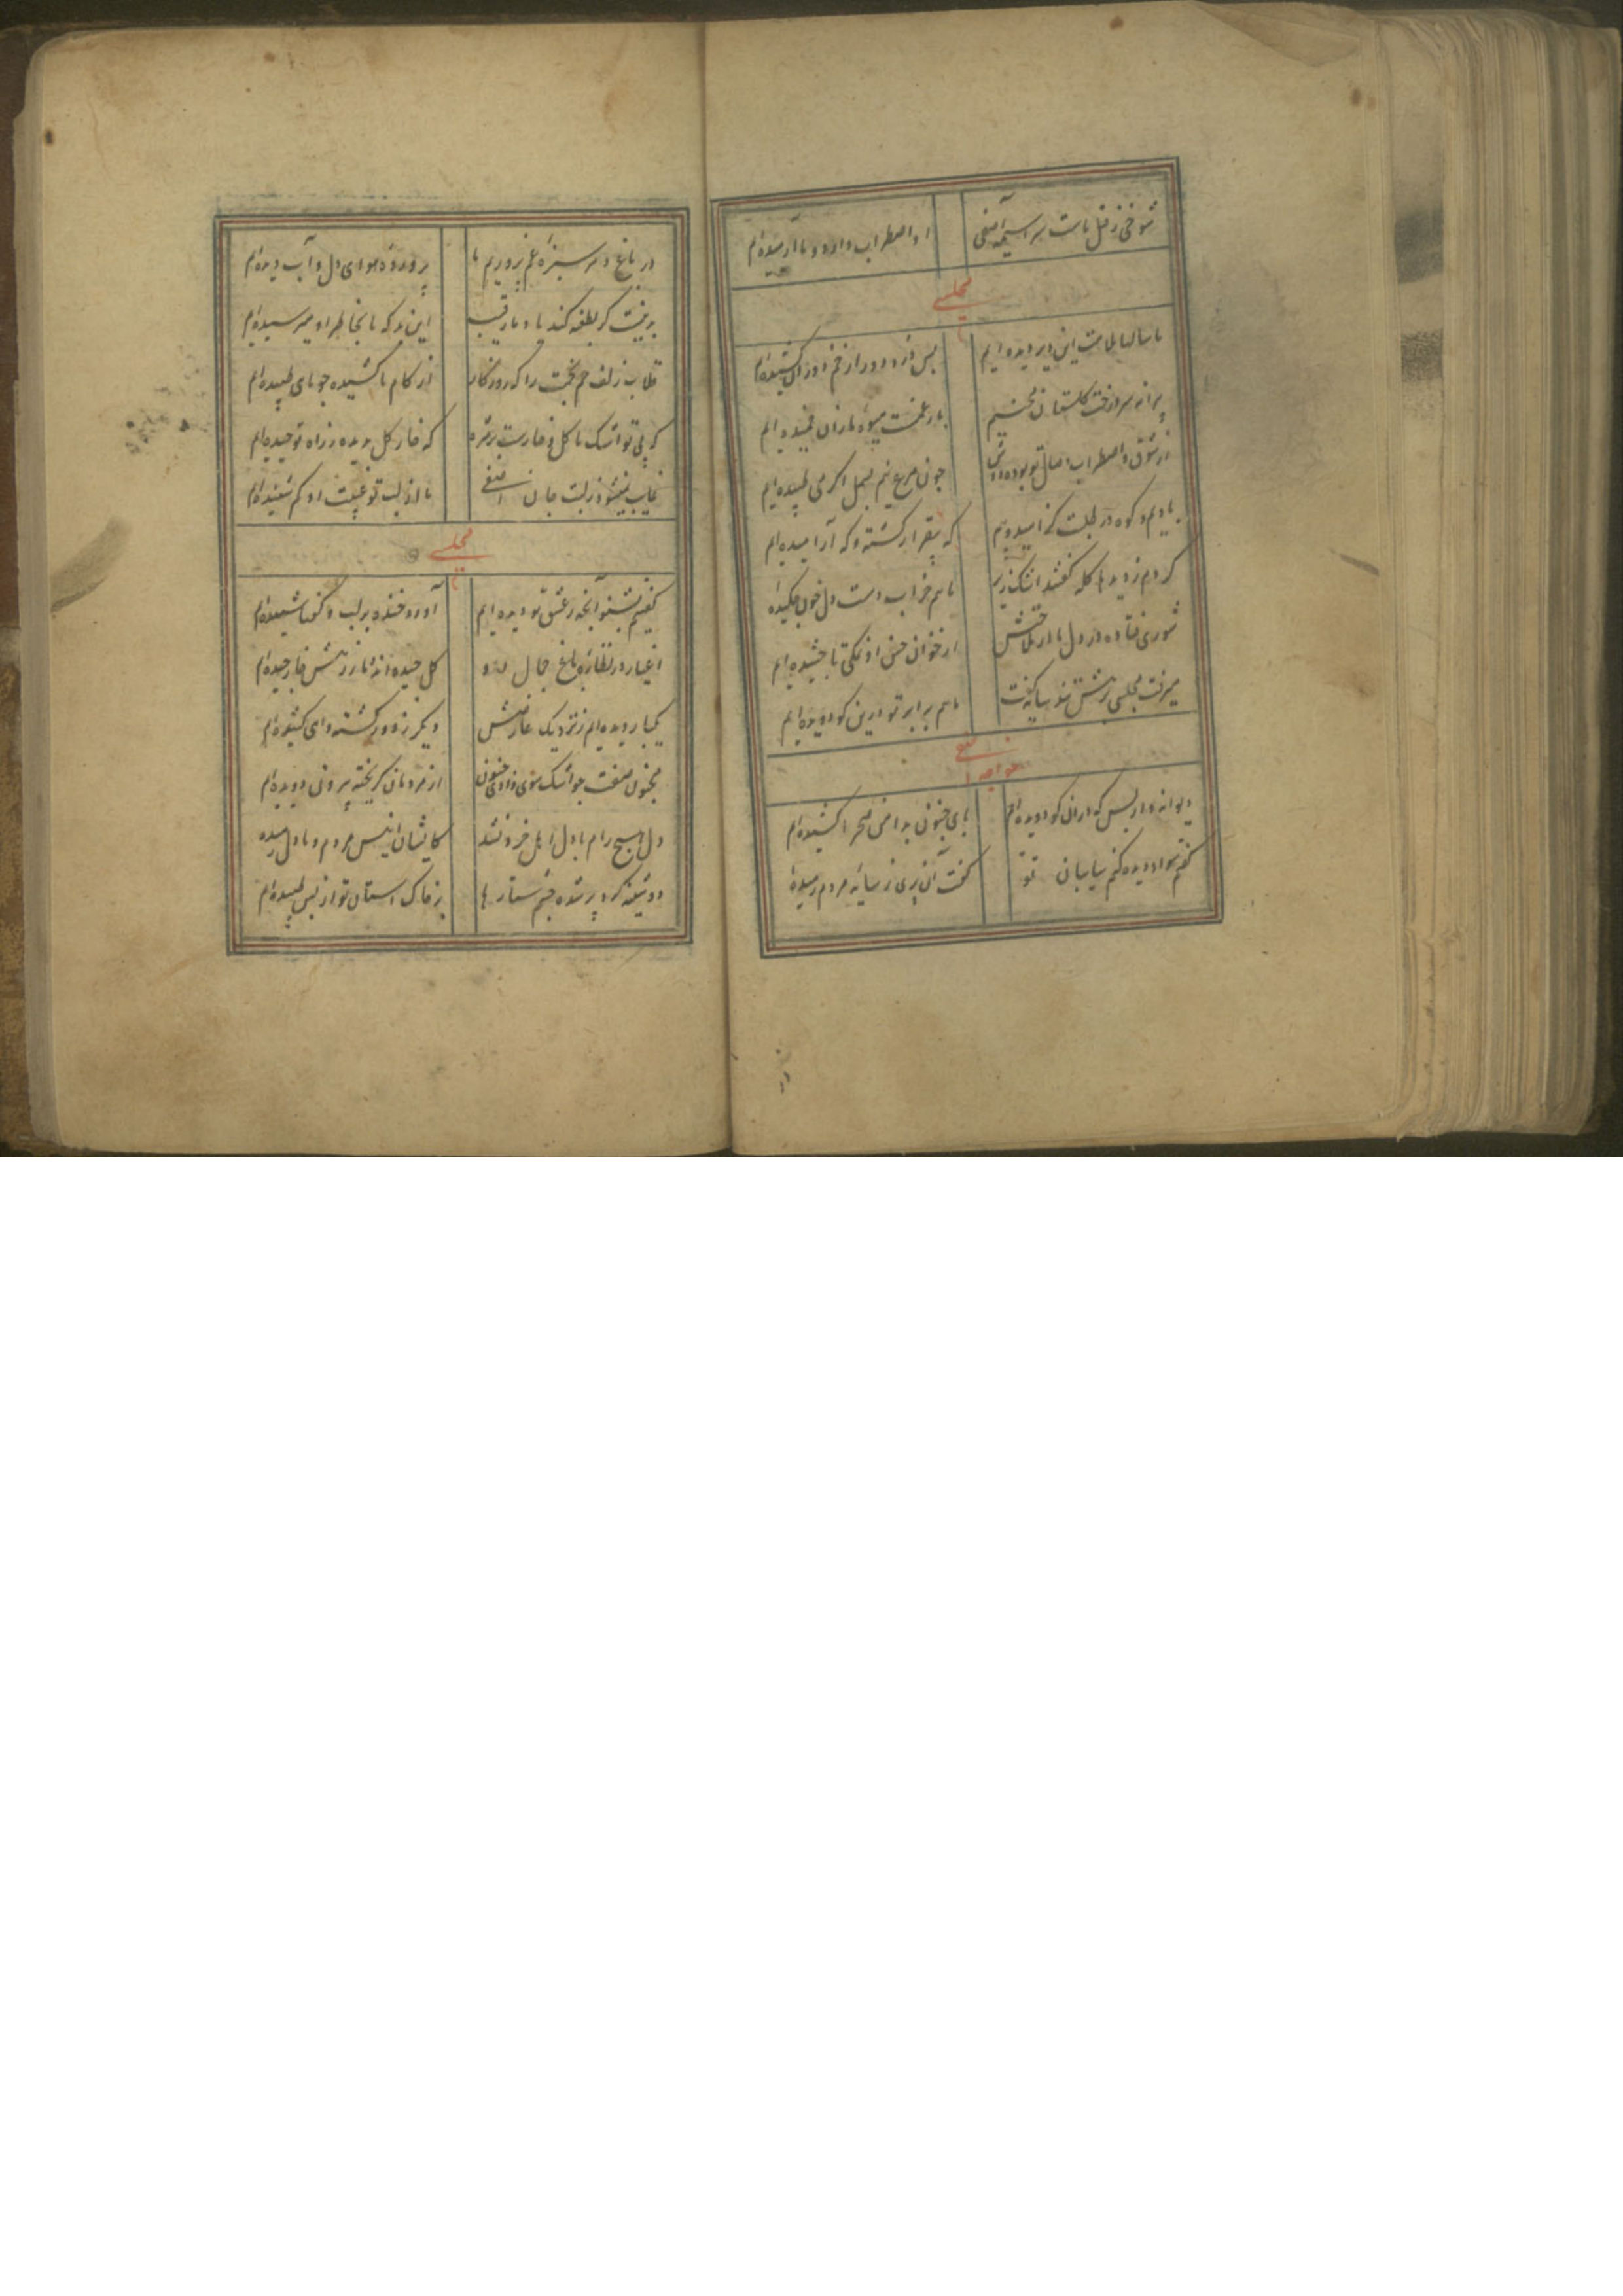 شوخی ز قتل ماست سراسیمه آصفی
او اضطراب دارد و ما آرمیده‌ایم
مجلسی
ما سالها ملامت این دیر دیده‌ایم
بس درد دور از خم او زان کشیده‌ایم
پیرانه سر درخت گلستان
بار غمت میوه
از شوق و اضطراب وصال تو بوده
چون مرغ نیم بسمل اگر می طپیده‌ایم
بادیم و کوه در طلبت
که بیقرار گشته و که آرامیده‌ایم
کردم ز دیدها گله گفتند اشک ریز
ما هم خراب دست دل خون چکیده
شوری فتاده در دل ما از ملاحتش
از خوان حسن او نمکی تا چشیده‌ایم
میرفت مجلسی ز پیش گفت
ما هم برابر تو درین کو دویده‌ایم
خواجه آصفی
دیوانه‌وار بس که در آن کو دویده‌ایم
پای جنون بدامن صحرا کشیده‌ایم
گفتم سواد دیده کنم سایبان تو
گفت آن پری ز سایه مردم رمیده
در باغ دهر سبزه غم پروریم ما
پرورده هوای دل و آب دیده‌ایم
گر بطعنه کند یاد ما رقیب
این بد که ما بخاطر او میرسیده‌ایم
قلاب زلف خم بخمت را که روزگار
از کام ما کشیده چو ماهی طپیده‌ایم
که پی تو اشک ما گل و خارست بر مژه
که خار گل بدیده ز راه تو چیده‌ایم
غایب نمیشود ز لبت جان آصفی
ما از لب تو غیبت او کم شنیده‌ایم
مجلسی
گفتیم بشنو آنچه ز عشق تو دیده‌ایم
آورد خنده بر لب و گفتا شنیده‌ایم
اغیار در نظاره باغ جمال تو
گل چیده‌اند اما ز پیش خار چیده‌ایم
یکبار دیده‌ایم ز نزدیک عارضش
دیگر ز دور گشته دمی کشیده‌ایم
مجنون صفت چو اشک سوی وادی جنون
از مردمان گریخته بیرون دویده‌ایم
دل هیچ رام با دل اهل خرد نشد
کایشان انیس مردم و ما دل رمیده
دوشینه گرد پر شده چشم ستارها
بر خاک آستان تو از بس طپیده‌ایم